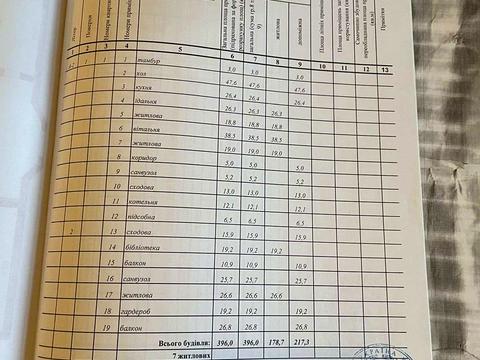 Літер
Поверхи
Номери кварт
Номери примі
Загальна площа прим
(підрахована за фор
підрахунку площі)
Загальна (сума гр.8 і
9)
житлова
допоміжна
Площа літніх приміщ
Площа приміщень заг
користування (кв
Самочинно збудов
переобладнана площа
(кв.м)
Примітки
1 2 3 4 5 6 7 8 9 10 11 12 13
1 1 1 тамбур 3,0 3,0 3,0
2 хол 47,6 47,6 47,6
3 кухня 26,4 26,4 26,4
4 їдальня 26,3 26,3 26,3
5 житлова 18,8 18,8 18,8
6 вітальня 38,5 38,5 38,5
7 житлова 19,0 19,0 19,0
8 коридор 5,0 5,0 5,0
9 санвузол 5,2 5,2 5,2
10 сходова 13,0 13,0 13,0
11 котельня 12,1 12,1 12,1
12 підсобна 6,5 6,5 6,5
2 13 сходова 15,9 15,9 15,9
14 бібліотека 19,2 19,2 19,2
15 балкон 10,9 10,9 10,9
16 санвузол 25,7 25,7 25,7
17 житлова 26,6 26,6 26,6
18 гардероб 19,2 19,2 19,2
19 балкон 26,8 26,8 26,8
Всього будівлі: 396,0 396,0 178,7 217,3
7 житлових